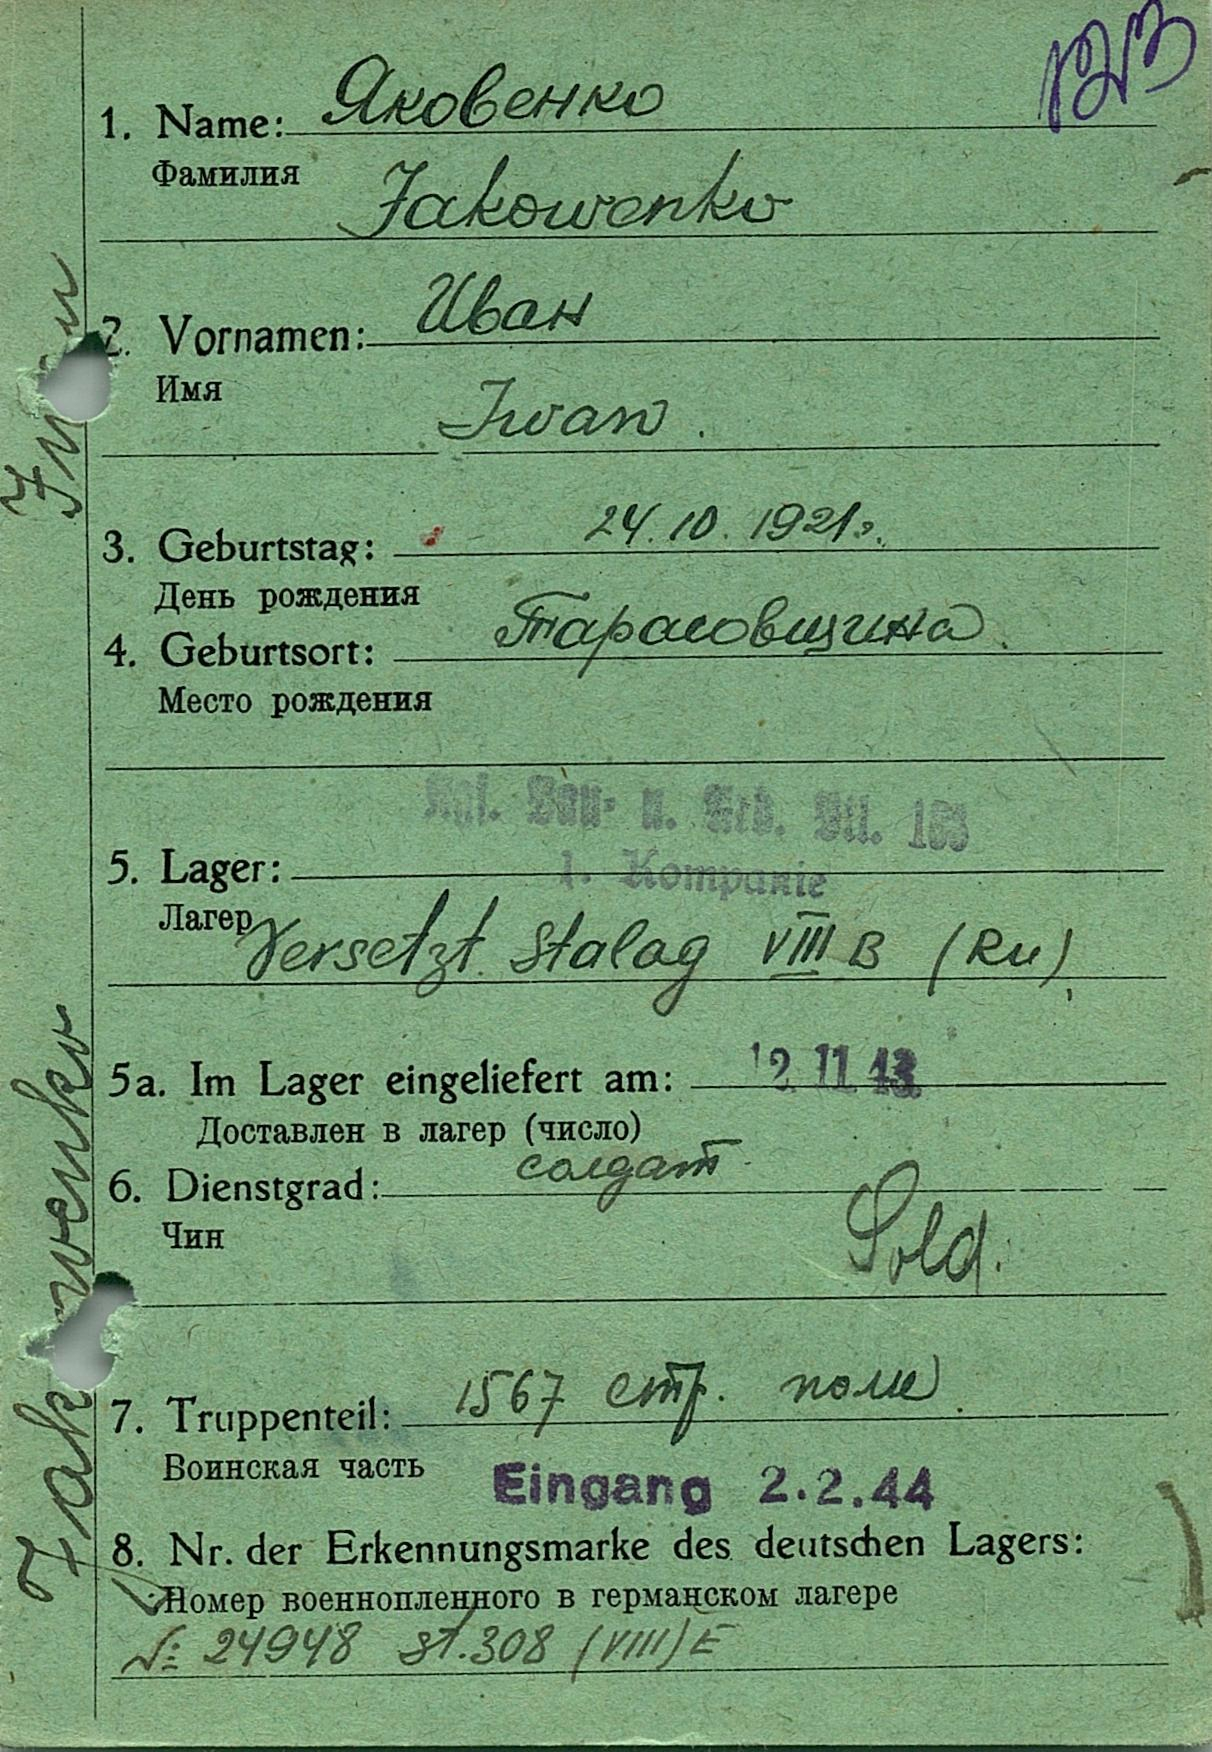 1. Name: Яковенко
Фамилия
Jakowenko
2. Vornamen: Иван
Имя
Iwan.
3. Geburtstag: 24.10.1921г.
День рождения
4. Geburtsort: Тарасовщина.
Место рождения
Bau- u. Arb. Btl. 163
1. Kompanie
5. Lager:
Лагер
Versetzt Stalag VIII B (Ru)
5a. Im Lager eingeliefert am: 12 11 43
Доставлен в лагер (число)
6. Dienstgrad: солдат
Чин
Sold.
7. Truppenteil: 1567 стр.
Воинская часть
Eingang 2.2.44
8. Nr. der Erkennungsmarke des deutschen Lagers:
Номер военнопленного в германском лагере
№ 24948 St. 308 (VIII) E